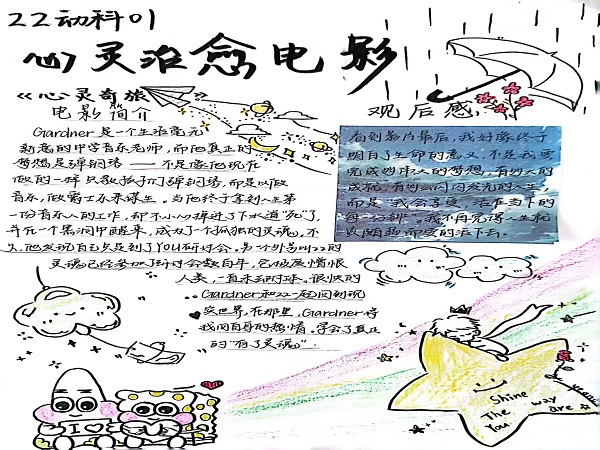 22动科01
心灵治愈电影
《心灵奇旅》
电影简介
Gardner是一个生活毫无
新意的中学音乐老师，而他真正的
梦想是弹钢琴——不是像他现在
做的一样只教孩子们弹钢琴，而是以做
音乐，做爵士乐来谋生。当他终于拿到人生第
一份音乐人的工作，却不小心掉进了下水道"死"了，
并在一个黑洞中醒来，成为了一个孤独的灵魂。不
久，他发现自己只是到了YOU研讨会。另一个外号叫22的
灵魂已经参加了研讨会数百年，它极度憎恨
人类，一直未到地球。很快的
Gardner和22一起回到现
实世界，在那里，Gardner将
找回自身的热情，学会了真正
的"有了灵魂"。
观后感
看到影片最后，我好像终于
明白了生命的意义，不是我要
完成如伟大的梦想，有如大的
成就，有如闪闪发光的人生，
而是"我会享受，活在当下的
每一分钟"。我不再觉得人生就
该随题而安的活下去。
I
Shine
The way
You are